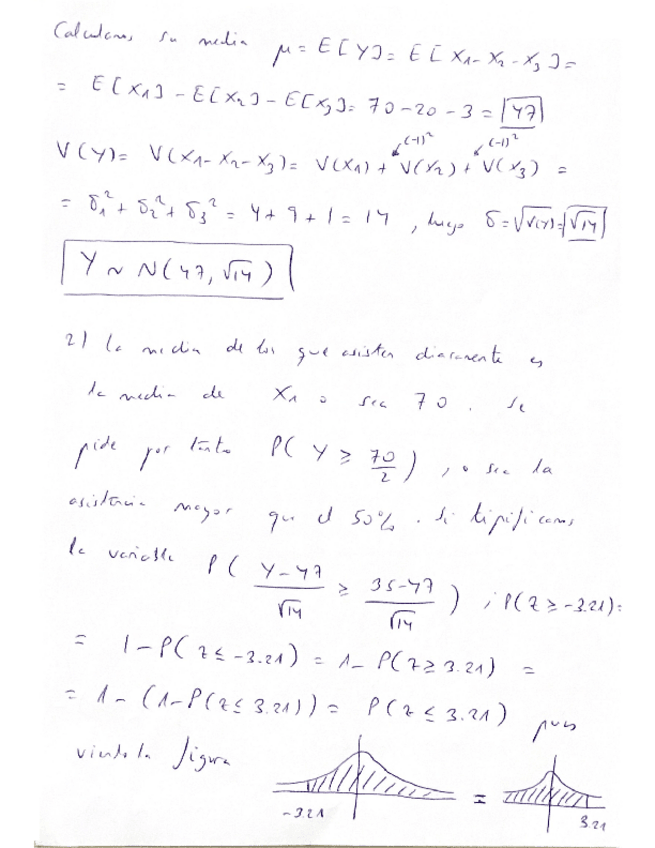 Calculamos su media μ = E[Y] = E[X1 - X2 - X3] =
= E[X1] - E[X2] - E[X3] = 70 - 20 - 3 = 47
(-1)² (-1)²
V(Y) = V(X1 - X2 - X3) = V(X1) + V(X2) + V(X3) =
= δ1² + δ2² + δ3² = 4 + 9 + 1 = 14 , luego δ = √V(Y) = √14
Y ~ N(47, √14)
2) la media de los que asisten diariamente es
la media de X1 o sea 70 . Se
pide por tanto P(Y ≥ 70/2) , o sea la
asistencia mayor que el 50% . Si tipificamos
la variable P( (Y-47)/√14 ≥ (35-47)/√14 ) ; P(Z ≥ -3.21) =
= 1 - P(Z ≤ -3.21) = 1 - P(Z ≥ 3.21) =
= 1 - (1 - P(Z ≤ 3.21)) = P(Z ≤ 3.21) pues
viendo la figura
=
-3.21 3.21